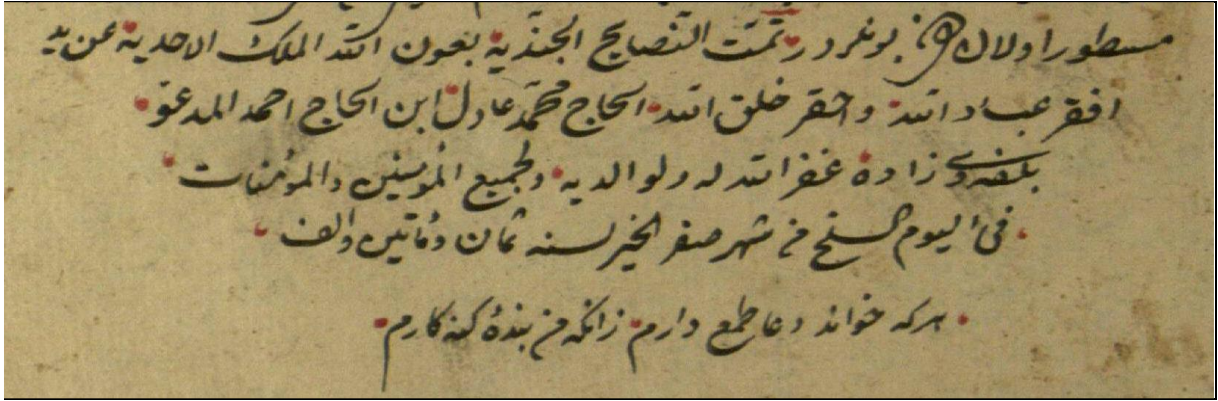 مسطور اولان بونلردر تمت النصايح الجندية بعون الله الملك الاحدية عن يد
افقر عباد الله واحقر خلق الله الحاج محمد عادل ابن الحاج احمد المدعو
زاده غفر الله له ولوالديه ولجميع المؤمنين والمؤمنات
فى اليوم السلخ من شهر صفر الخير لسنه ثمان ومأتين والف
هركه خواند دعا طمع دارم زانكه من بندۀ كنه كارم